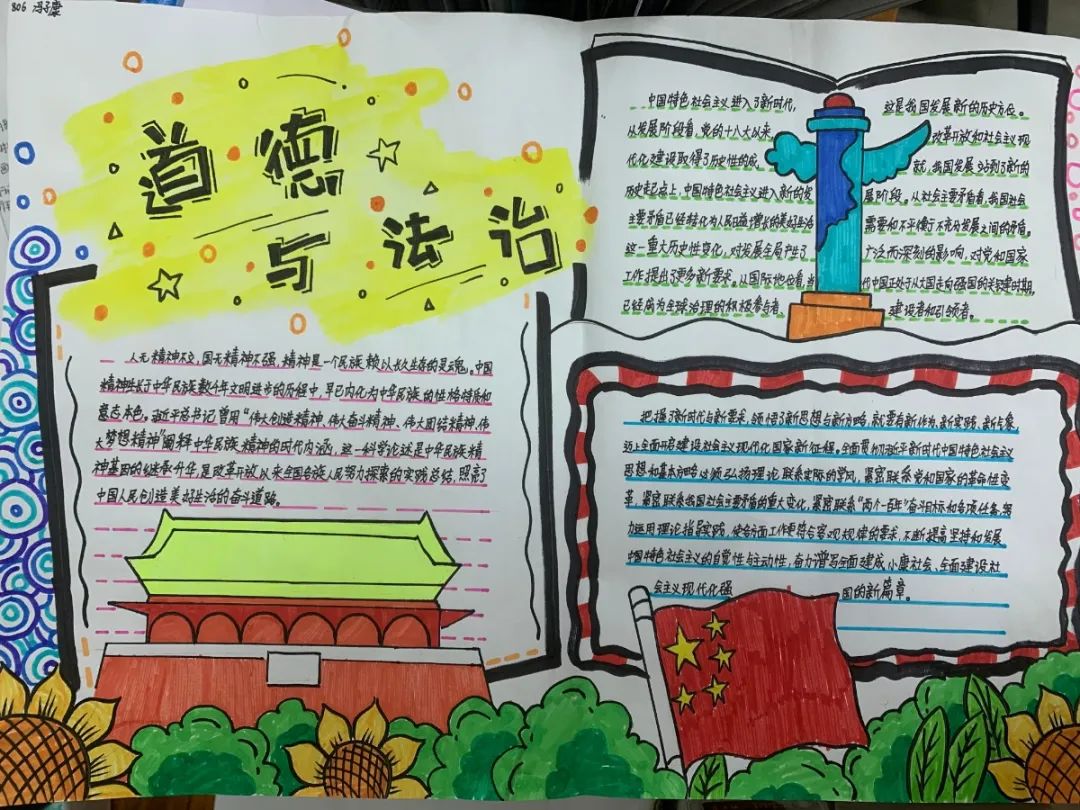 806 冯子霖
道德
与法治
人无精神不立，国无精神不强。精神是一个民族赖以长久生存的灵魂。中国
精神生长于中华民族数千年文明进步的历程中，早已内化为中华民族的性格特质和
意志本色。习近平总书记曾用“伟大创造精神、伟大奋斗精神、伟大团结精神、伟
大梦想精神”阐释中华民族精神的时代内涵，这一科学论述是中华民族精
神基因的继承升华，是改革开放以来全国各族人民努力探索的实践总结，照亮了
中国人民创造美好生活的奋斗道路。
中国特色社会主义进入了新时代，这是我国发展新的历史方位。
从发展阶段看，党的十八大以来改革开放和社会主义现
代化建设取得了历史性的成就，我国发展站到了新的
历史起点上，中国特色社会主义进入新的发展阶段。从社会主要矛盾看，我国社会
主要矛盾已经转化为人民日益增长的美好生活需要和不平衡不充分发展之间的矛盾，
这一重大历史性变化，对发展全局产生了广泛而深刻的影响，对党和国家
工作提出了更多新要求。从国际地位看，当代中国正处于从大国走向强国的关键时期，
已经成为全球治理的积极参与者、建设者和引领者。
把握了新时代与新要求，领悟了新思想与新方略，就要有新作为、新实践、新气象，
迈上全面开启建设社会主义现代化国家新征程。全面贯彻习近平新时代中国特色社会主义
思想和基本方略，必须弘扬理论联系实际的学风，紧密联系党和国家的革命性变
革，紧密联系我国社会主要矛盾的重大变化，紧密联系“两个一百年”奋斗目标和各项任务，努
力运用理论指导实践，使各方面工作更符合客观规律的要求，不断提高坚持和发展
中国特色社会主义的自觉性与主动性，奋力谱写全面建成小康社会、全面建设社
会主义现代化强国的新篇章。